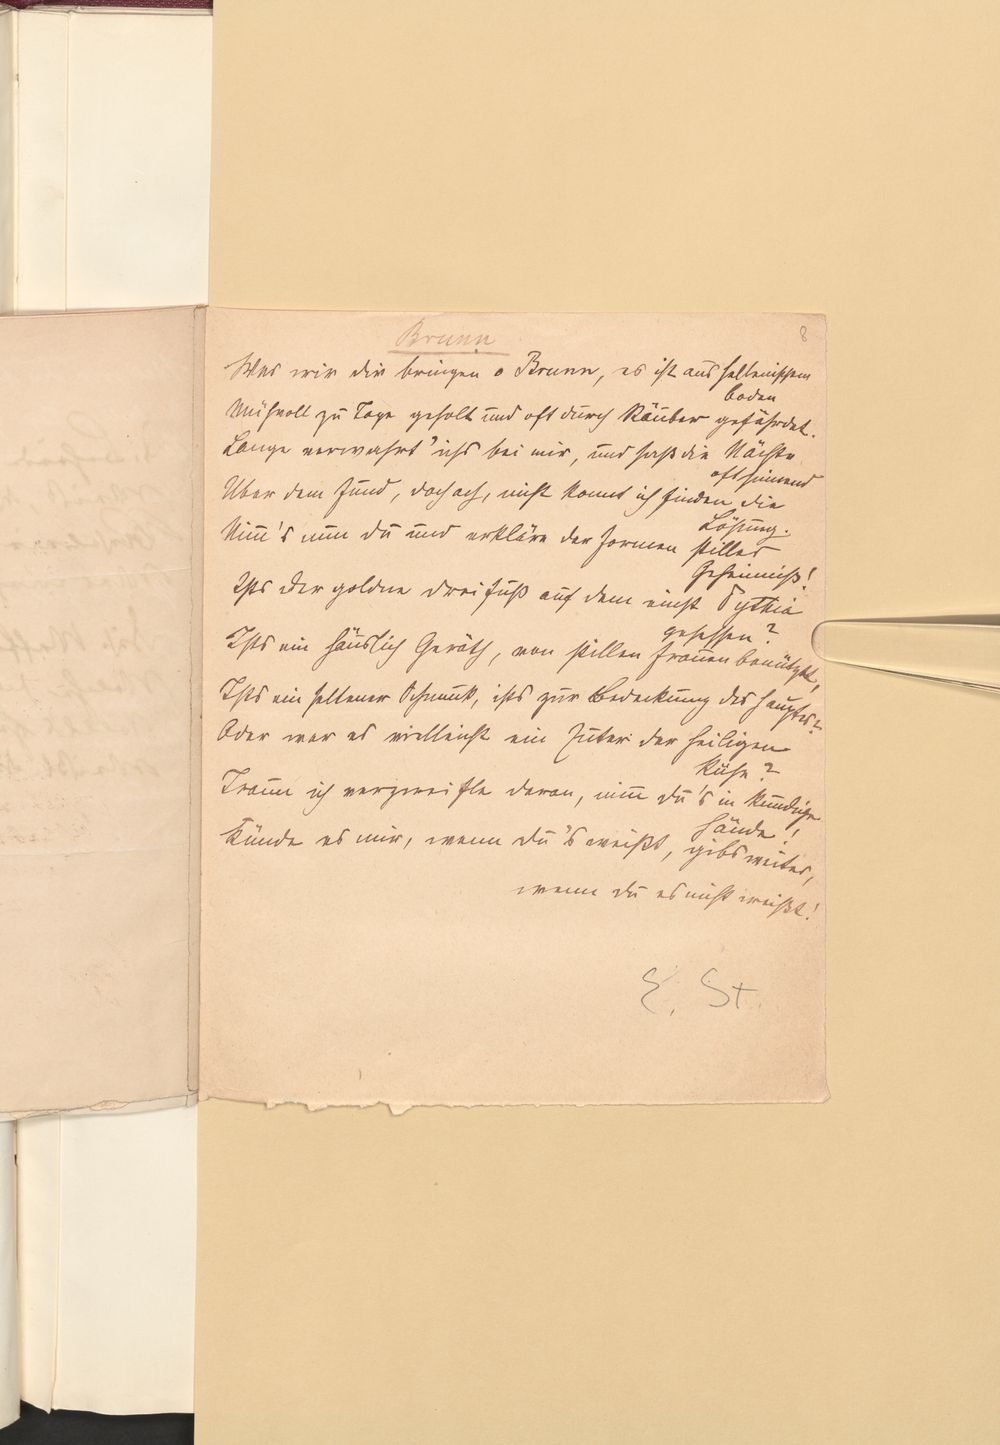 8
Brunn
Was wir dir bringen o Brunn, es ist aus hellenischem
Boden
Mühvoll zu Tage geholt und oft durch Räuber gefährdet.
Lange verwahrt' ichs bei mir, und saß die Nächte
oft sinnend
Über dem Fund, doch ach, nicht konnt ich finden die
Lösung.
Nim̅'s nun du und erkläre der Formen stilles
Geheimniß!
Ists der goldne Dreifuß auf dem einst Pythia
gesessen?
Ists ein häuslich Geräth, von stillen Frauen benützet,
Ists ein seltener Schmuck, ists zur Bedeckung des Hauptes?
Oder war es vielleicht ein Euter der heiligen
Kühe?
Traun ich verzweifle daran, nim̅ du's in kundige
Hände!
Künde es mir, wenn du's weißt, gibs weiter,
wenn du es nicht weißt!
E. St.